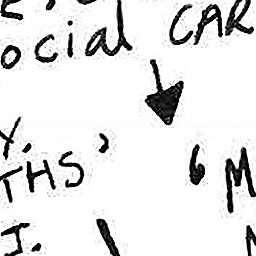 ocial CAR
Y.
THS' 'M
I.